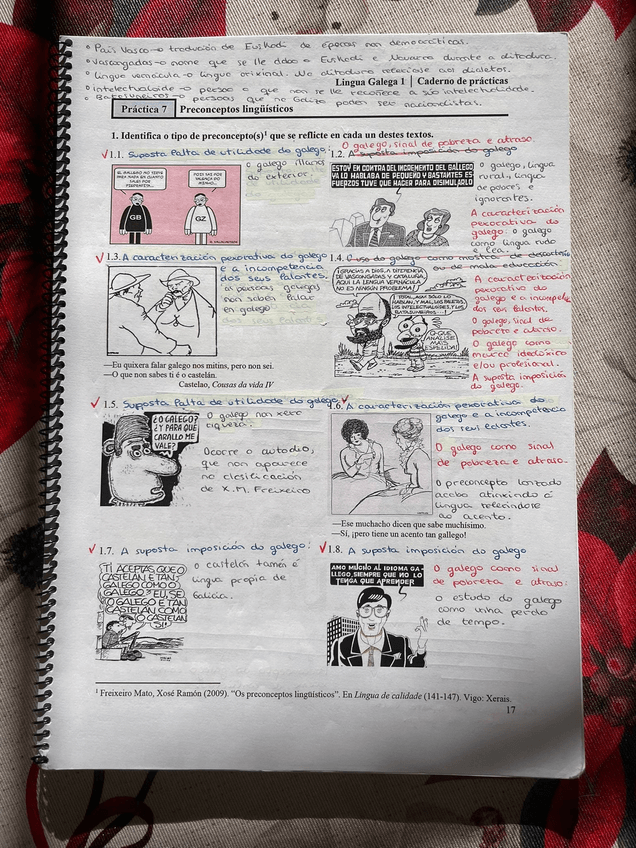 País Vasco → tradución de Euskadi de épocas non democráticas.
Vascongadas → nome que se lle daba a Euskadi e Navarra durante a ditadura.
Lingua vernácula → lingua orixinal. Na ditadura referíase aos dialetos.
Lingua Galega 1 | Caderno de prácticas
Intelectualoide → persoa a que non se lle recoñece a súa intelectualidade.
Batasuneiros → persoas que na Galiza poden ser nacionalistas.
Práctica 7 Preconceptos lingüísticos
1. Identifica o tipo de preconcepto(s)¹ que se reflicte en cada un destes textos.
O galego, sinal de pobreza e atraso.
1.1. Suposta falta de utilidade do galego:
o galego illanos do exterior.
EL GALLEGO NO VIENE
GB
GZ
1.2. A suposta imposición do galego
ESTOY EN CONTRA DEL INCREMENTO DEL GALLEGO
YA LO HABLABA DE PEQUEÑO Y BASTANTES ES
FUERZOS TUVE QUE HACER PARA DISIMULARLO
o galego, lingua
rural, lingua
de pobres e
ignorantes.
A caracterización
pexorativa do
galego: o galego
como lingua rude
e fea.
1.3. A caracterización pexorativa do galego
e a incompetencia
dos seus falantes.
as persoas galegas
non saben falar
en galego
—Eu quixera falar galego nos mitins, pero non sei.
—O que non sabes ti é o castelán.
Castelao, Cousas da vida IV
1.4. O uso do galego como mostra de
ou de mala educación.
¡GRACIAS A DIOS, A DIFERENCIA
DE VASCONGADAS Y CATALUÑA,
AQUI LA LENGUA VERNACULA
NO ES NINGÚN PROBLEMA!
HABLAN, Y MAL, LOS PALETOS,
LOS INTELECTUALOIDES, Y LOS
¡O QUE
ANÁLISE
MÁIS
A caracterización
pexorativa do
galego e a incompetencia
dos seus falantes.
O galego, sinal de
pobreza e atraso.
O galego como
marca ideolóxica
e/ou profesional.
A suposta imposición
do galego.
1.5. Suposta falta de utilidade do galego
¿O GALEGO?
¿Y PARA QUÉ
CARALLO ME
VALE?
O galego non xera
riqueza.
Ocorre o autoodio,
que non aparece
na clasificación
de X.M. Freixeiro
1.6. A caracterización pexorativa do
galego e a incompetencia
dos seus falantes.
O galego como sinal
de pobreza e atraso.
O preconcepto lanzado
acaba atinxindo á
lingua referíndose
ao acento.
—Ese muchacho dicen que sabe muchísimo.
—Sí, ¡pero tiene un acento tan gallego!
1.7. A suposta imposición do galego:
TÍ ACEPTAS QUE O
CASTELÁN E TAN
GALEGO COMO O
GALEGO? EU, SE
O GALEGO E TAN
CASTELÁN COMO
O CASTELÁN
SÍ!
o castelán tamén é
lingua propia de
Galicia.
1.8. A suposta imposición do galego
AMO MUCHO AL IDIOMA GA-
LLEGO, SIEMPRE QUE NO LO
TENGA QUE APRENDER
O galego como sinal
de pobreza e atraso:
o estudo do galego
como unha perda
de tempo.
¹ Freixeiro Mato, Xosé Ramón (2009). “Os preconceptos lingüísticos”. En Lingua de calidade (141-147). Vigo: Xerais.
17